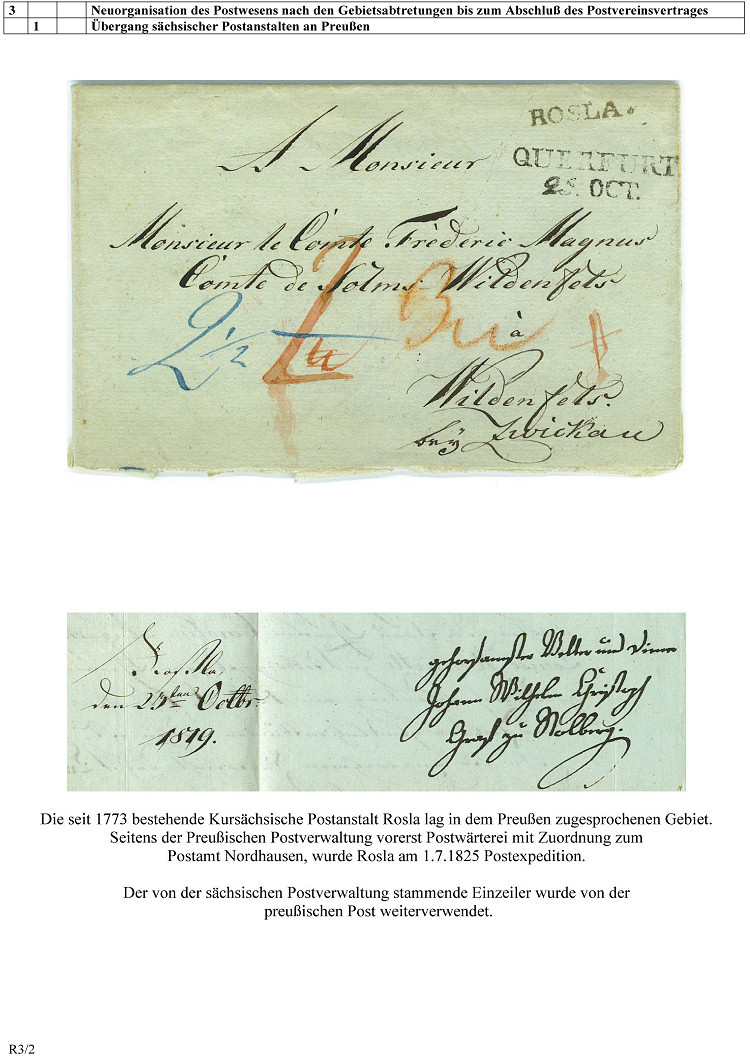 3 Neuorganisation des Postwesens nach den Gebietsabtretungen bis zum Abschluß des Postvereinsvertrages
1 Übergang sächsischer Postanstalten an Preußen
ROSLA.
A Monsieur
QUERFURT
25. OCT.
Monsieur le Comte Fréderic Magnus
Comte de Solms Wildenfels
2½
à
Wildenfels.
bey Zwickau
Rossla,
den 23ten Octbr.
1819.
gehorsamster Vetter und Diener
Johann Wilhelm Christoph
Graf zu Stolberg.
Die seit 1773 bestehende Kursächsische Postanstalt Rosla lag in dem Preußen zugesprochenen Gebiet.
Seitens der Preußischen Postverwaltung vorerst Postwärterei mit Zuordnung zum
Postamt Nordhausen, wurde Rosla am 1.7.1825 Postexpedition.
Der von der sächsischen Postverwaltung stammende Einzeiler wurde von der
preußischen Post weiterverwendet.
R3/2